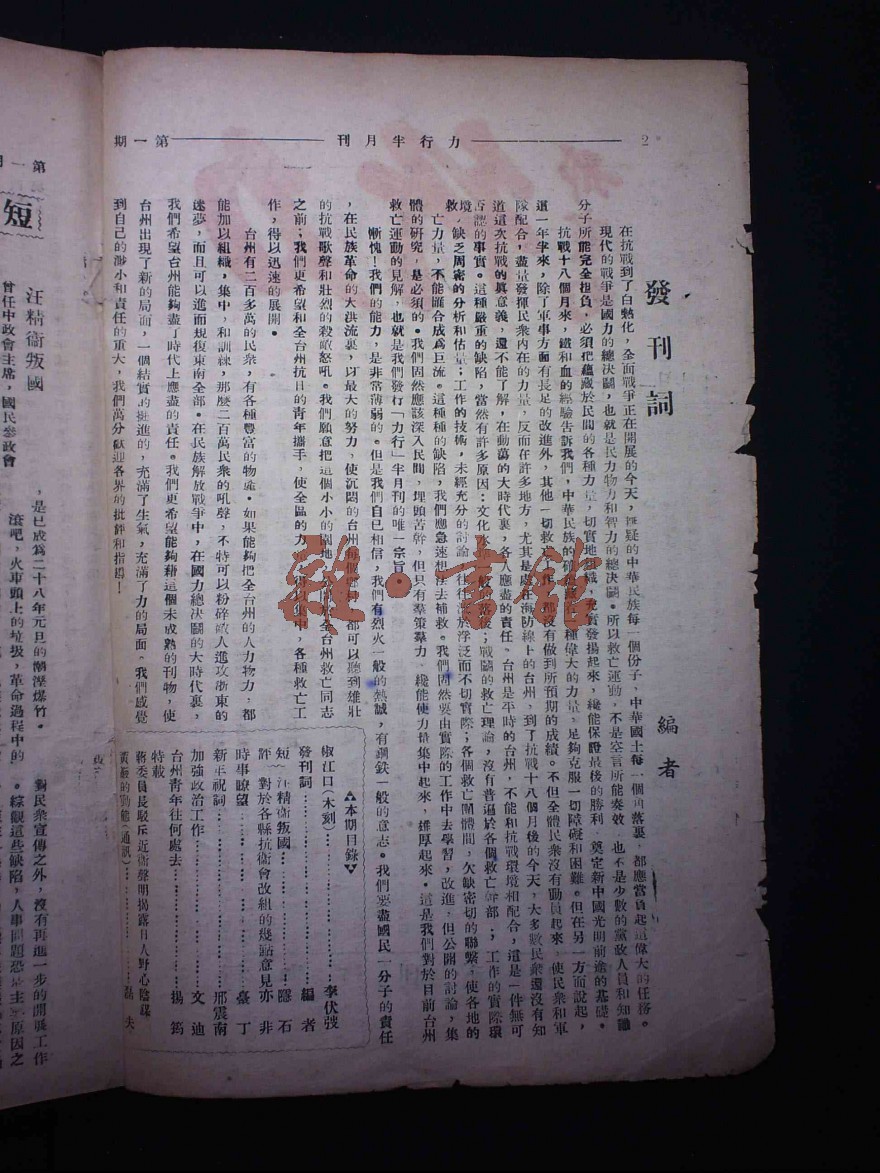 2 力行半月刊 第一期
發刊詞
編者
在抗戰到了白熱化,全面戰爭正在開展的今天,無疑的中華民族每一個份子,中華國土每一個角落裏,都應當負起這偉大的任務。
現代的戰爭是國力的總決鬭,也就是民力物力和智力的總決鬭。所以救亡運動,不是空言所能奏效,也不是少數的黨政人員和知識
分子所能完全担負,必須把蘊藏於民間的各種力量,切實地組織,充實發揚起來,纔能保證最後的勝利,奠定新中國光明前途的基礎。
抗戰十八個月來,鐵和血的經驗告訴我們,中華民族的確蘊藏着種偉大的力量,足夠克服一切障礙和困難。但在另一方面說起,
這一年半來,除了軍事方面有長足的改進外,其他一切救亡工作,都沒有做到所預期的成績。不但全體民衆沒有動員起來,使民衆和軍
隊配合,盡量發揮民衆內在的力量,反而在許多地方,尤其是處在海防線上的台州,到了抗戰十八個月後的今天,大多數民衆還沒有知
道這次抗戰的眞意義,還不能了解,在動蕩的大時代裏,各人應盡的責任。台州是平時的台州,不能和抗戰環境相配合,這是一件無可
否認的事實。這種嚴重的缺陷,當然有許多原因:文化水準一般的落後;戰鬭的救亡理論,沒有普遍於各個救亡幹部;工作的實際環
境,缺乏周密的分析和估量;工作的技術,未經充分的討論,往往流於浮泛而不切實際;各個救亡團體間,欠缺密切的聯繫,使各地的
救亡力量,不能匯合成爲巨流。這種種的缺陷,我們應急速想法去補救。我們固然要由實際的工作中去學習,改進,但公開的討論,集
體的研究,是必須的。我們固然應該深入民間,埋頭苦幹,但只有羣策羣力,纔能使力量集中起來,雄厚起來。這是我們對於目前台州
救亡運動的見解,也就是我們發行「力行」半月刊的唯一宗旨。
慚愧!我們的能力,是非常薄弱的。但是我們自已相信,我們有烈火一般的熱誠,有鋼鉄一般的意志。我們要盡國民一分子的責任
,在民族革命的大洪流裏,以最大的努力,使沉悶的台州每個都可以聽到雄壯
的抗戰歌聲和壯烈的殺敵怒吼。我們願意把這個小小的園地,於全台州救亡同志
之前;我們更希望和全台州抗日的青年攜手,使全區的力量得以集中,各種救亡工
作,得以迅速的展開。
台州有二百多萬的民衆,有各種豐富的物產。如果能夠把全台州的人力物力,都
能加以組織,集中,和訓練,那麼二百萬民衆的吼聲,不特可以粉碎敵人進攻浙東的
迷夢,而且可以進而規復東南全部。在民族解放戰爭中,在國力總決鬭的大時代裏,
我們希望台州能夠盡了時代上應盡的責任。我們更希望能夠藉這個未成熟的刊物,使
台州出現了新的局面,一個結實的挺進的,充滿了生氣,充滿了力的局面。我們感覺
到自己的渺小和責任的重大,我們萬分歡迎各界的批評和指導!
本期目錄
椒江口(木刻)……李伏弢
發刊詞……編者
短評 汪精衛叛國……隱石
對於各縣抗衛會改組的幾點意見 亦非
時事瞭望……臺丁
新年祝詞……邢震南
加強政治工作……文迪
台州青年往何處去……揚筠
特載
蔣委員長駁斥近衛聲明揭露日人野心陰謀
黃巖的動態(通訊)……磊夫
第一期
短
汪精衛叛國
曾任中政會主席,國民參政會
,是已成爲二十八年元旦的漸溼爆竹。
滾吧,火車頭上的垃圾,革命過程中的
對民衆宣傳之外,沒有再進一步的開展工作
。綜觀這些缺陷,人事問題恐是主要原因之
雜·書館